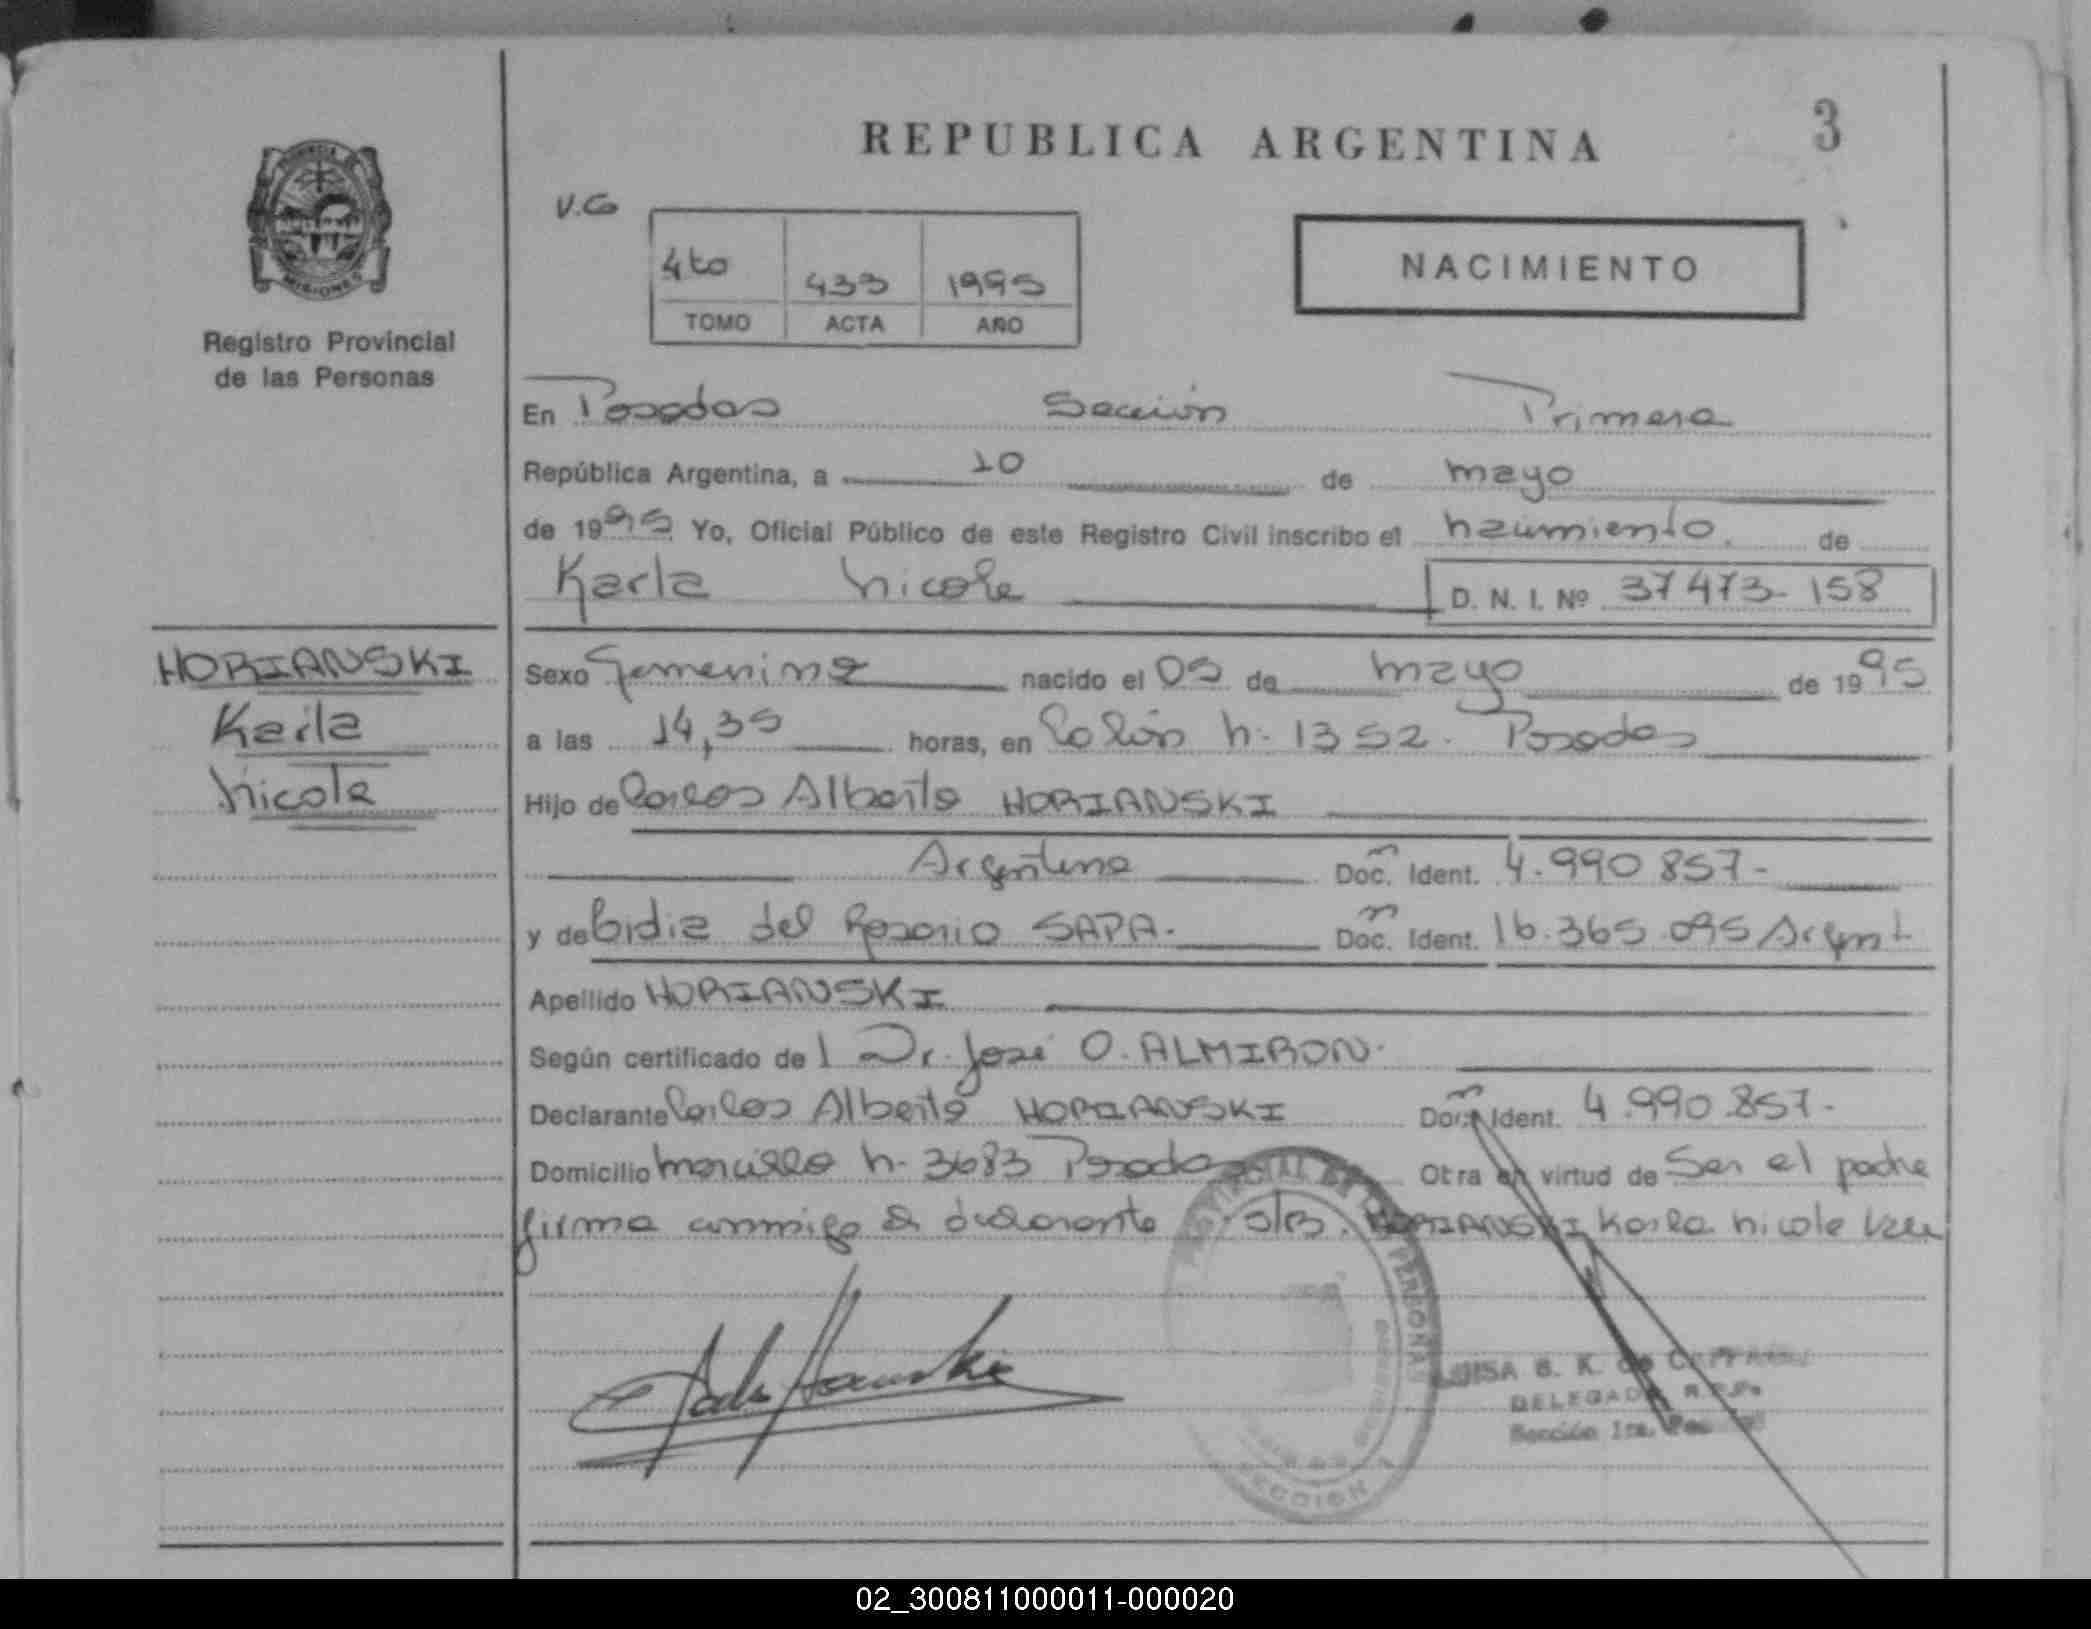 REPUBLICA ARGENTINA
3
PROVINCIA DE
MISIONES
Registro Provincial
de las Personas
V.G
4to 433 1995
TOMO ACTA AÑO
NACIMIENTO
En Posadas Sección Primera
República Argentina, a 10 de mayo
de 1995 Yo, Oficial Público de este Registro Civil inscribo el nacimiento. de
Karla Nicole D. N. I. Nº 37473-158
HORIANSKI
Karla
Nicole
Sexo Femenina nacido el 05 de mayo de 1995
a las 14,35 horas, en Colón N- 1352. Posadas
Hijo de Carlos Alberto HORIANSKI
Argentino Doc. Ident. 4.990857-
y de Lidia del Rosario SAPA. Doc. Ident. 16.365.095 Argent
Apellido HORIANSKI
Según certificado de l Dr. José O. ALMIRON.
Declarante Carlos Alberto HORIANSKI Doc. Ident. 4.990.857-
Domicilio N- 3683 Posadas Otra en virtud de Ser el padre
firma conmigo el declarante S/B. HORIANSKI Karla Nicole Vale
PROVINCIAL DE LAS PERSONAS
SECCION 1
LUISA B. K. de
DELEGADA R.P.P.
Sección 1ra.
02_300811000011-000020